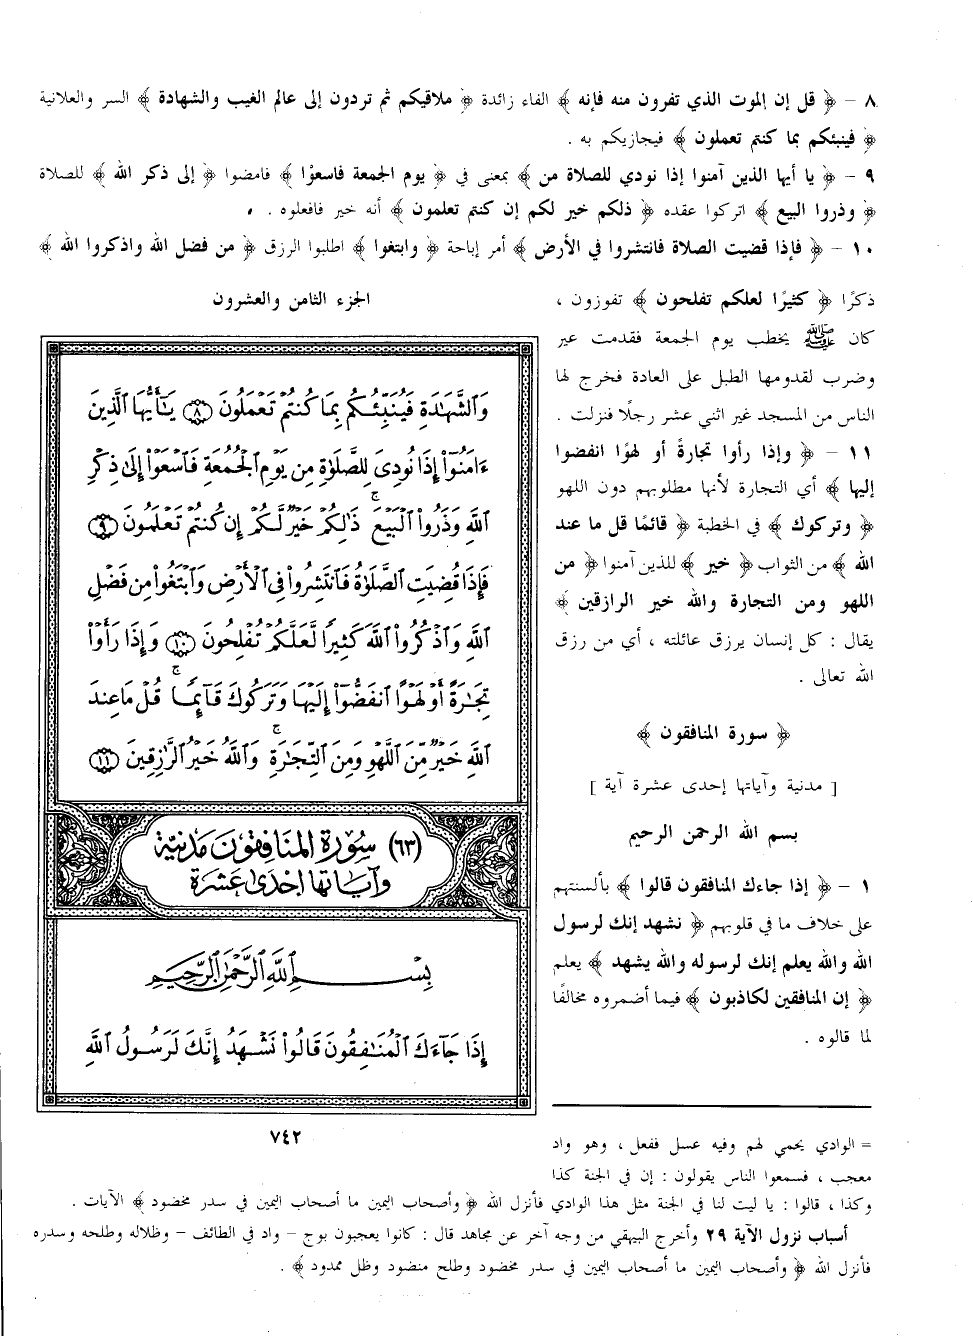 ٨ - ﴿ قل إن الموت الذي تفرون منه فإنه ﴾ الفاء زائدة ﴿ ملاقيكم ثم تردون إلى عالم الغيب والشهادة ﴾ السر والعلانية
﴿ فينبئكم بما كنتم تعملون ﴾ فيجازيكم به .
٩ - ﴿ يا أيها الذين آمنوا إذا نودي للصلاة من ﴾ بمعنى في ﴿ يوم الجمعة فاسعوْا ﴾ فامضوا ﴿ إلى ذكر الله ﴾ للصلاة
﴿ وذروا البيع ﴾ اتركوا عقده ﴿ ذلكم خير لكم إن كنتم تعلمون ﴾ أنه خير فافعلوه .
١٠ - ﴿ فإذا قضيت الصلاة فانتشروا في الأرض ﴾ أمر إباحة ﴿ وابتغوا ﴾ اطلبوا الرزق ﴿ من فضل الله واذكروا الله ﴾
ذكرًا ﴿ كثيرًا لعلكم تفلحون ﴾ تفوزون ،
كان ﷺ يخطب يوم الجمعة فقدمت عير
وضرب لقدومها الطبل على العادة فخرج لها
الناس من المسجد غير اثني عشر رجلًا فنزلت .
١١ - ﴿ وإذا رأوا تجارةً أو لهوًا انفضوا
إليها ﴾ أي التجارة لأنها مطلوبهم دون اللهو
﴿ وتركوك ﴾ في الخطبة ﴿ قائمًا قل ما عند
الله ﴾ من الثواب ﴿ خير ﴾ للذين آمنوا ﴿ من
اللهو ومن التجارة والله خير الرازقين ﴾
يقال : كل إنسان يرزق عائلته ، أي من رزق
الله تعالى .
﴿ سورة المنافقون ﴾
[ مدنية وآياتها إحدى عشرة آية ]
بسم الله الرحمن الرحيم
١ - ﴿ إذا جاءك المنافقون قالوا ﴾ بألسنتهم
على خلاف ما في قلوبهم ﴿ نشهد إنك لرسول
الله والله يعلم إنك لرسوله والله يشهد ﴾ يعلم
﴿ إن المنافقين لكاذبون ﴾ فيما أضمروه مخالفًا
لما قالوه .
الجزء الثامن والعشرون
وَٱلشَّهَٰدَةِ فَيُنَبِّئُكُم بِمَا كُنتُمْ تَعْمَلُونَ ٨ يَٰٓأَيُّهَا ٱلَّذِينَ
ءَامَنُوٓا۟ إِذَا نُودِىَ لِلصَّلَوٰةِ مِن يَوْمِ ٱلْجُمُعَةِ فَٱسْعَوْا۟ إِلَىٰ ذِكْرِ
ٱللَّهِ وَذَرُوا۟ ٱلْبَيْعَ ۚ ذَٰلِكُمْ خَيْرٌ لَّكُمْ إِن كُنتُمْ تَعْلَمُونَ ٩
فَإِذَا قُضِيَتِ ٱلصَّلَوٰةُ فَٱنتَشِرُوا۟ فِى ٱلْأَرْضِ وَٱبْتَغُوا۟ مِن فَضْلِ
ٱللَّهِ وَٱذْكُرُوا۟ ٱللَّهَ كَثِيرًا لَّعَلَّكُمْ تُفْلِحُونَ ١٠ وَإِذَا رَأَوْا۟
تِجَٰرَةً أَوْ لَهْوًا ٱنفَضُّوٓا۟ إِلَيْهَا وَتَرَكُوكَ قَآئِمًا ۚ قُلْ مَا عِندَ
ٱللَّهِ خَيْرٌ مِّنَ ٱللَّهْوِ وَمِنَ ٱلتِّجَٰرَةِ ۚ وَٱللَّهُ خَيْرُ ٱلرَّٰزِقِينَ ١١
(٦٣) سُورَةُ المنَافِقُونَ مَدَنِيَّة
وَآيَاتُهَا إِحْدَى عَشْرَةَ
بِسْمِ ٱللَّهِ ٱلرَّحْمَٰنِ ٱلرَّحِيمِ
إِذَا جَآءَكَ ٱلْمُنَٰفِقُونَ قَالُوا۟ نَشْهَدُ إِنَّكَ لَرَسُولُ ٱللَّهِ
٧٤٢
= الوادي يحمي لهم وفيه عسل ففعل ، وهو واد
معجب ، فسمعوا الناس يقولون : إن في الجنة كذا
وكذا ، قالوا : يا ليت لنا في الجنة مثل هذا الوادي فأنزل الله ﴿ وأصحاب اليمين ما أصحاب اليمين في سدر مخضود ﴾ الآيات .
أسباب نزول الآية ٢٩ وأخرج البيهقي من وجه آخر عن مجاهد قال : كانوا يعجبون بوج - واد في الطائف - وظلاله وطلحه وسدره
فأنزل الله ﴿ وأصحاب اليمين ما أصحاب اليمين في سدر مخضود وطلح منضود وظل ممدود ﴾ .